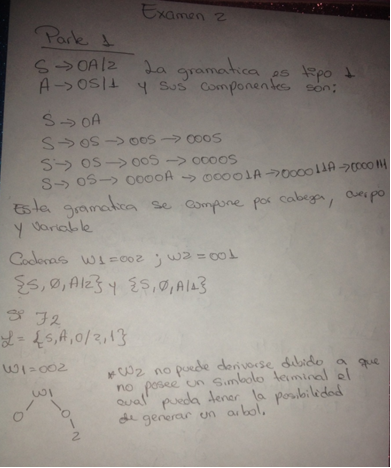 Examen 2
Parte 1
S → 0A/2 La gramatica es tipo 1
A → 0S/1 y sus componentes son:
S → 0A
S → 0S → 00S → 000S
S → 0S → 00S → 0000S
S → 0S → 0000A → 00001A → 000011A →
Esta gramatica se compone por cabeza, cuerpo
y variable
Cadenas W1 = 002 ; W2 = 001
{S, Ø, A/2} y {S, Ø, A/1}
L = {S, A, 0/2, 1}
W1 = 002 * W2 no puede derivarse debido a que
no posee un simbolo terminal el
cual pueda tener la posibilidad
de generar un arbol.
W1
0 0
2